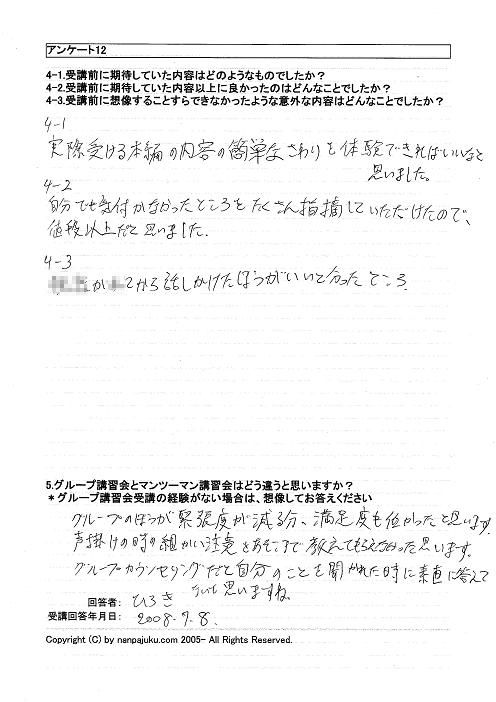 アンケート12
4-1.受講前に期待していた内容はどのようなものでしたか？
4-2.受講前に期待していた内容以上に良かったのはどんなことでしたか？
4-3.受講前に想像することすらできなかったような意外な内容はどんなことでしたか？
4-1
実際受ける本編の内容の簡単なさわりを体験できればいいなと
思いました。
4-2
自分でも気付かなかったところをたくさん指摘していただけたので、
値段以上だと思いました.
4-3
てから話しかけたほうがいいと分ったところ.
5.グループ講習会とマンツーマン講習会はどう違うと思いますか？
＊グループ講習会受講の経験がない場合は、想像してお答えください
グループのほうが緊張度が減る分、満足度も低かったと思います.
声掛けの時の細かい注意をあそこまで教えてもらえなかった思います.
グループカウンセリングだと自分のことを聞かれた時に素直に答えて
ないと思いますね.
回答者： ひろき
受講回答年月日： 2008.9.8.
Copyright (C) by nanpajuku.com 2005- All Rights Reserved.